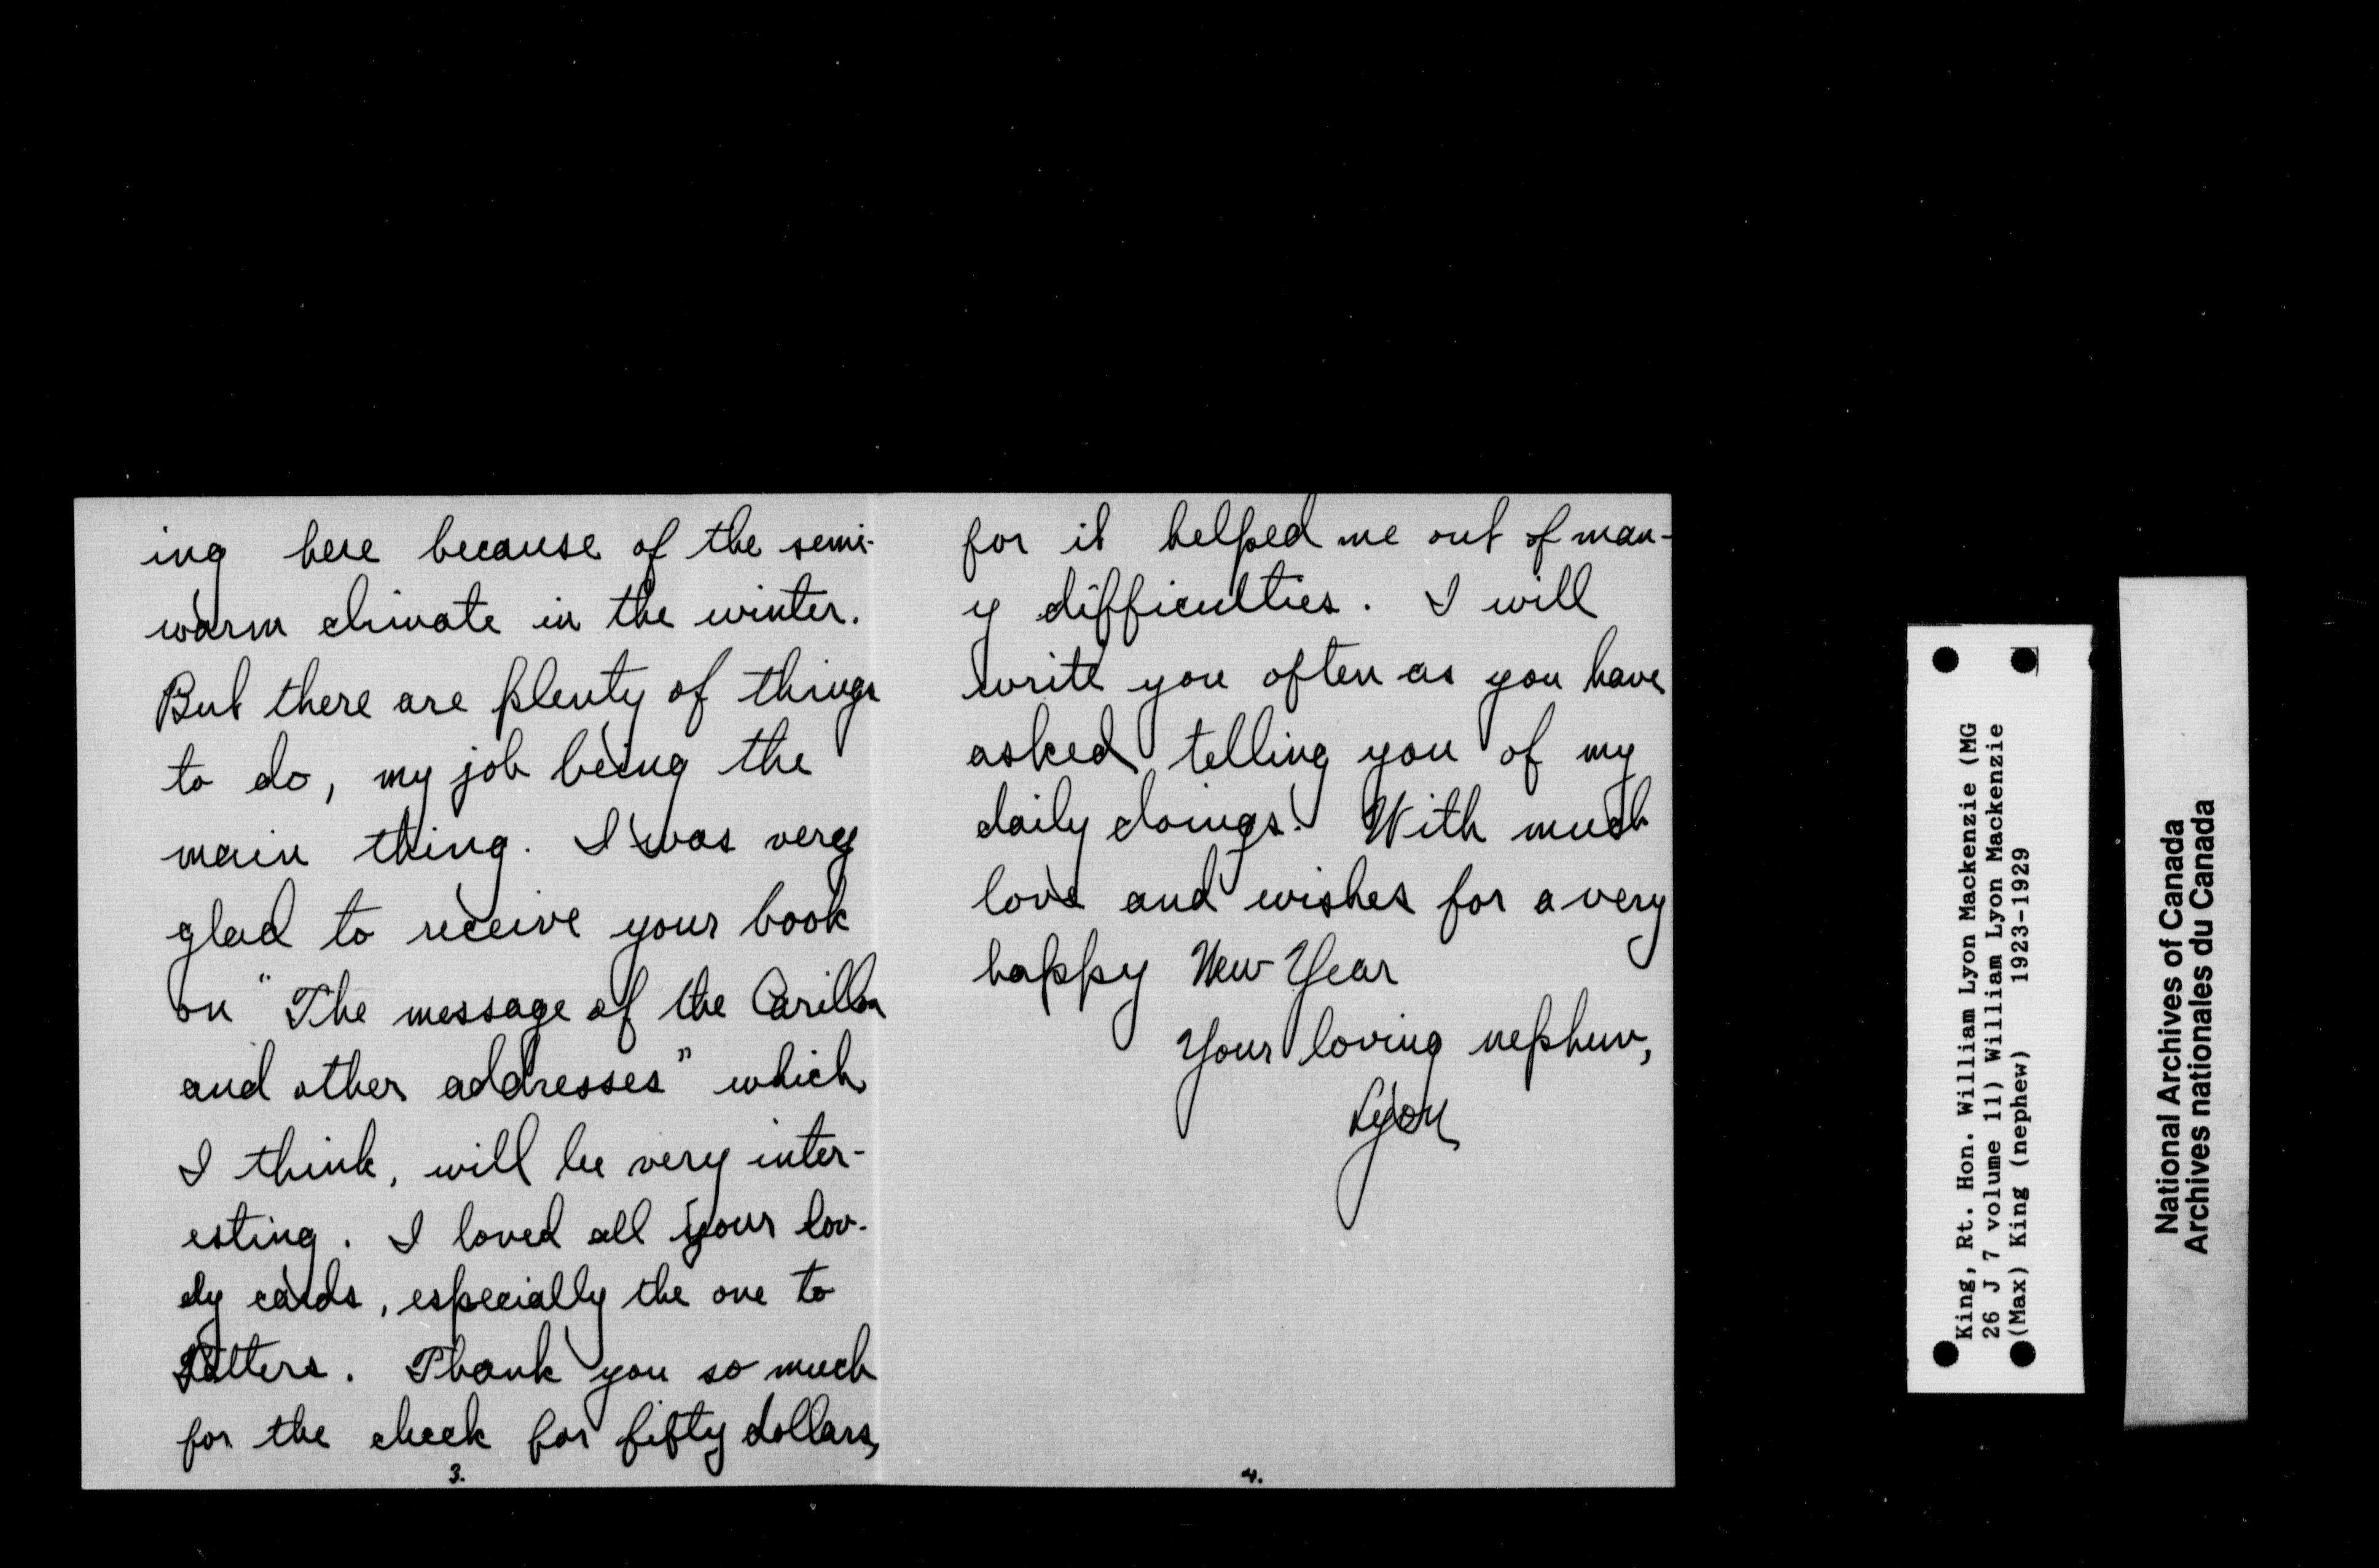 ing here because of the semi-
warm climate in the winter.
But there are plenty of things
to do, my job being the
main thing. I was very
glad to receive your book
on "The message of the Carillon
and other addresses" which
I think, will be very inter-
esting. I loved all your lov-
ely cards, especially the one to
Thank you so much
for the check for fifty dollars,
3.
for it helped me out of man-
y difficulties. I will
write you often as you have
asked telling you of my
daily doings. With much
love and wishes for a very
happy New Year
Your loving nephew,
Lyon
4.
King, Rt. Hon. William Lyon Mackenzie (MG
26 J 7 volume 11) William Lyon Mackenzie
(Max) King (nephew) 1923-1929
National Archives of Canada
Archives nationales du Canada